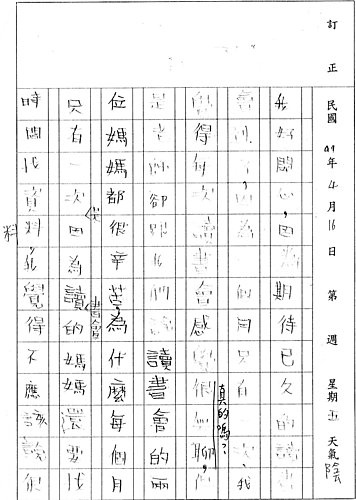 訂正
民國99年4月16日 第 週 星期五 天氣陰
我好開心,因為期待已久的讀書
會,因為的月只有一次,我
覺得每次讀書會感覺很無聊,
真的嗎?
是卻跟我們讀書會的兩
位媽媽都很辛苦,為什麼每個月
只有一次因為讀書會的媽媽還要找
時間找資料,我覺得不應該說很
料